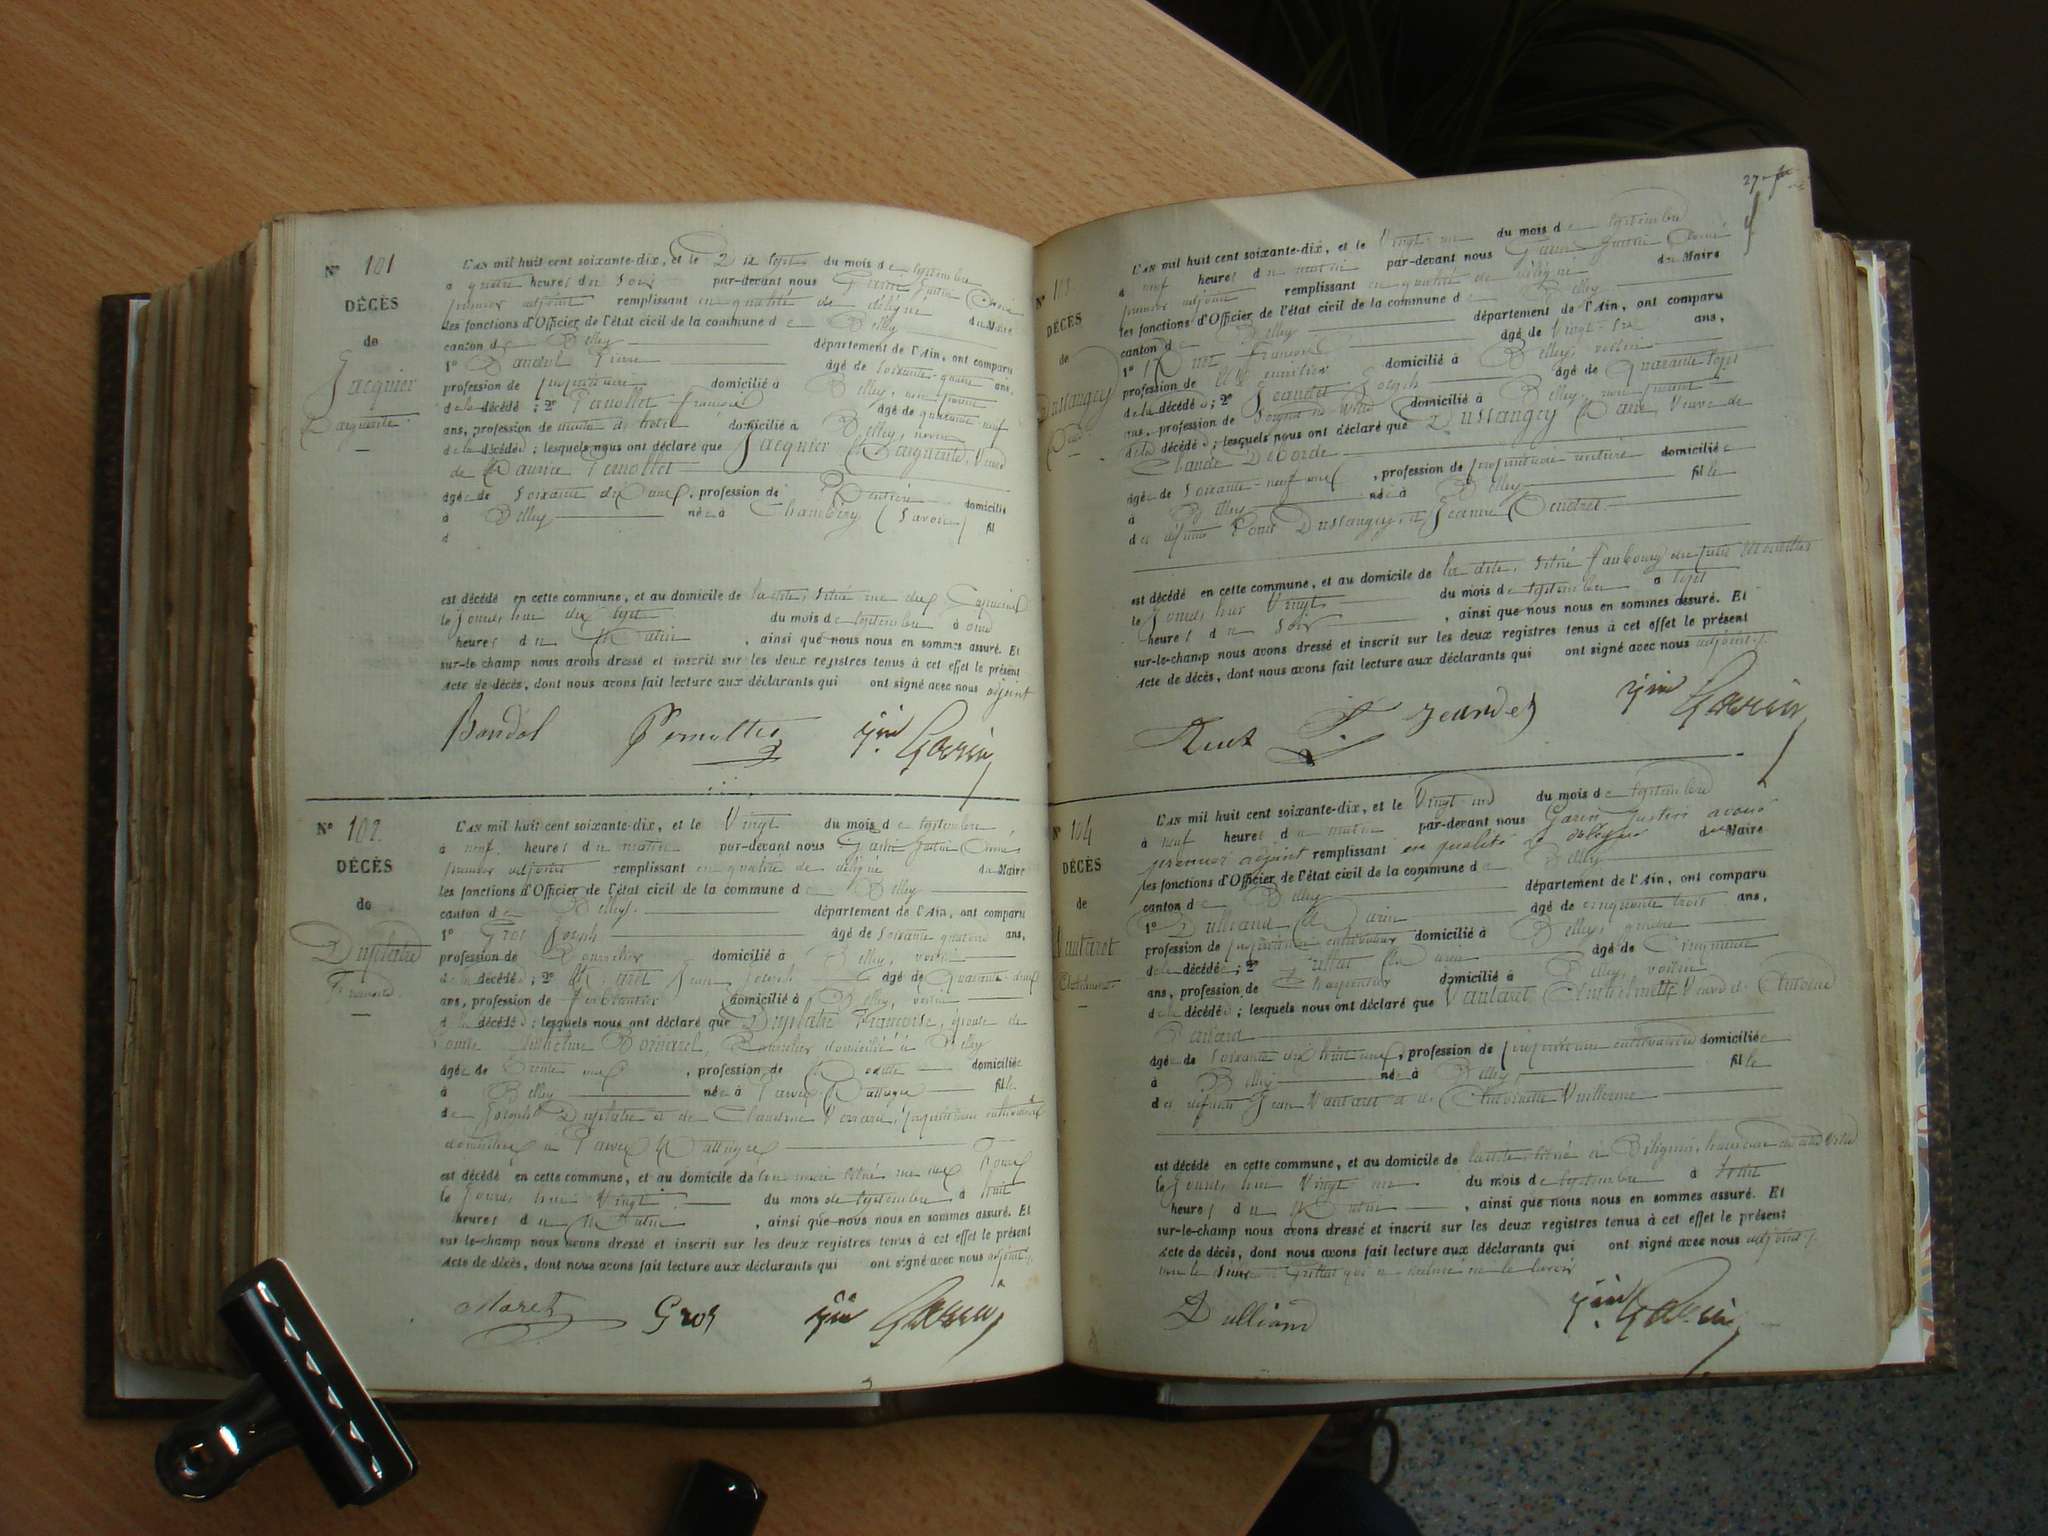 Nº 101
DÉCÈS
de
Jacquier
Marguerite
L'AN mil huit cent soixante-dix, et le Dix sept du mois de septembre
à quatre heures du soir par-devant nous Garin Justin
premier adjoint remplissant en qualité de délégué du Maire
les fonctions d'Officier de l'état civil de la commune de Belley
canton de Belley département de l'Ain, ont comparu
1º Bandol Pierre âgé de soixante-quatre ans,
profession de propriétaire domicilié à Belley, non parent
de la décédée; 2º Pernollet François âgé de quarante neuf
ans, profession de domicilié à Belley, neveu
de la décédée; lesquels nous ont déclaré que Jacquier Marguerite, Veuve
de Maurice Pernollet
âgée de soixante dix ans, profession de Rentière domiciliée
à Belley née à Chambéry (Savoie) fil
d
est décédé en cette commune, et au domicile de la dite, situé rue des Capucins
le Jourd'hui dix sept du mois de septembre à onze
heures du Matin, ainsi que nous nous en sommes assuré. Et
sur-le-champ nous avons dressé et inscrit sur les deux registres tenus à cet effet le présent
Acte de décès, dont nous avons fait lecture aux déclarants qui ont signé avec nous adjoint
Bandol Pernollet Jin Garin
Nº 102.
DÉCÈS
de
Duplatre
Françoise
L'AN mil huit cent soixante-dix, et le Vingt du mois de septembre,
à neuf heures du matin par-devant nous Garin Justin
premier adjoint remplissant en qualité de délégué du Maire
les fonctions d'Officier de l'état civil de la commune de Belley
canton de Belley. département de l'Ain, ont comparu
1º Gros Joseph âgé de soixante quatorze ans,
profession de domicilié à Belley, voisin
de la décédée; 2º Maret Jean Joseph âgé de Quarante deux
ans, profession de Ferblantier domicilié à Belley, voisin
de la décédée; lesquels nous ont déclaré que Duplatre Françoise, épouse de
Louis domicilié à Belley
âgée de Trente ans, profession de domiciliée
à Belley née à Parves fille
de Joseph Duplatre et de Claudine
domiciliés à Parves
est décédé en cette commune, et au domicile de son mari situé rue des
le Jourd'hui Vingt du mois de septembre à huit
heures du Matin, ainsi que nous nous en sommes assuré. Et
sur-le-champ nous avons dressé et inscrit sur les deux registres tenus à cet effet le présent
Acte de décès, dont nous avons fait lecture aux déclarants qui ont signé avec nous adjoint
Maret Gros Jin Garin
27
Nº 103
DÉCÈS
de
Dussangey
L'AN mil huit cent soixante-dix, et le Vingt un du mois de septembre
à neuf heures du matin par-devant nous Garin Justin
premier adjoint remplissant en qualité de délégué du Maire
les fonctions d'Officier de l'état civil de la commune de Belley
canton de Belley département de l'Ain, ont comparu
1º François âgé de Vingt-six ans,
profession de domicilié à Belley, voisin
de la décédée; 2º Jeandet Joseph âgé de Quarante-sept
ans, profession de domicilié à Belley, non parent
de la décédée; lesquels nous ont déclaré que Dussangey Veuve de
Claude
âgée de soixante-neuf ans, profession de propriétaire rentière domiciliée
à Belley née à Belley fille
des défunts Dussangey, et Jeanne
est décédé en cette commune, et au domicile de la dite, situé faubourg du
le Jourd'hier Vingt du mois de septembre à sept
heures du soir, ainsi que nous nous en sommes assuré. Et
sur-le-champ nous avons dressé et inscrit sur les deux registres tenus à cet effet le présent
Acte de décès, dont nous avons fait lecture aux déclarants qui ont signé avec nous adjoint
Jeandet Jin Garin
Nº 104
DÉCÈS
de
Vautaret
L'AN mil huit cent soixante-dix, et le Vingt un du mois de septembre
à neuf heures du matin par-devant nous Garin Justin avoué
premier adjoint remplissant en qualité de délégué du Maire
les fonctions d'Officier de l'état civil de la commune de Belley
canton de Belley département de l'Ain, ont comparu
1º Dulliand âgé de cinquante trois ans,
profession de propriétaire cultivateur domicilié à Belley, gendre
de la décédée; 2º Grillat âgé de Cinquante
ans, profession de Charpentier domicilié à Belley, voisin
de la décédée; lesquels nous ont déclaré que Vautaret Anthelmette Veuve de Antoine
âgée de soixante dix huit ans, profession de propriétaire cultivatrice domiciliée
à Belley née à Belley, fille
des défunts Jean Vautaret et de Antoinette Vuillerme
est décédé en cette commune, et au domicile de la dite situé à Billignin, hameau
le Jourd'hui Vingt un du mois de septembre à
heures du Matin, ainsi que nous nous en sommes assuré. Et
sur-le-champ nous avons dressé et inscrit sur les deux registres tenus à cet effet le présent
Acte de décès, dont nous avons fait lecture aux déclarants qui ont signé avec nous adjoint
non le sieur Grillat qui a déclaré ne le savoir
Dulliand Jin Garin